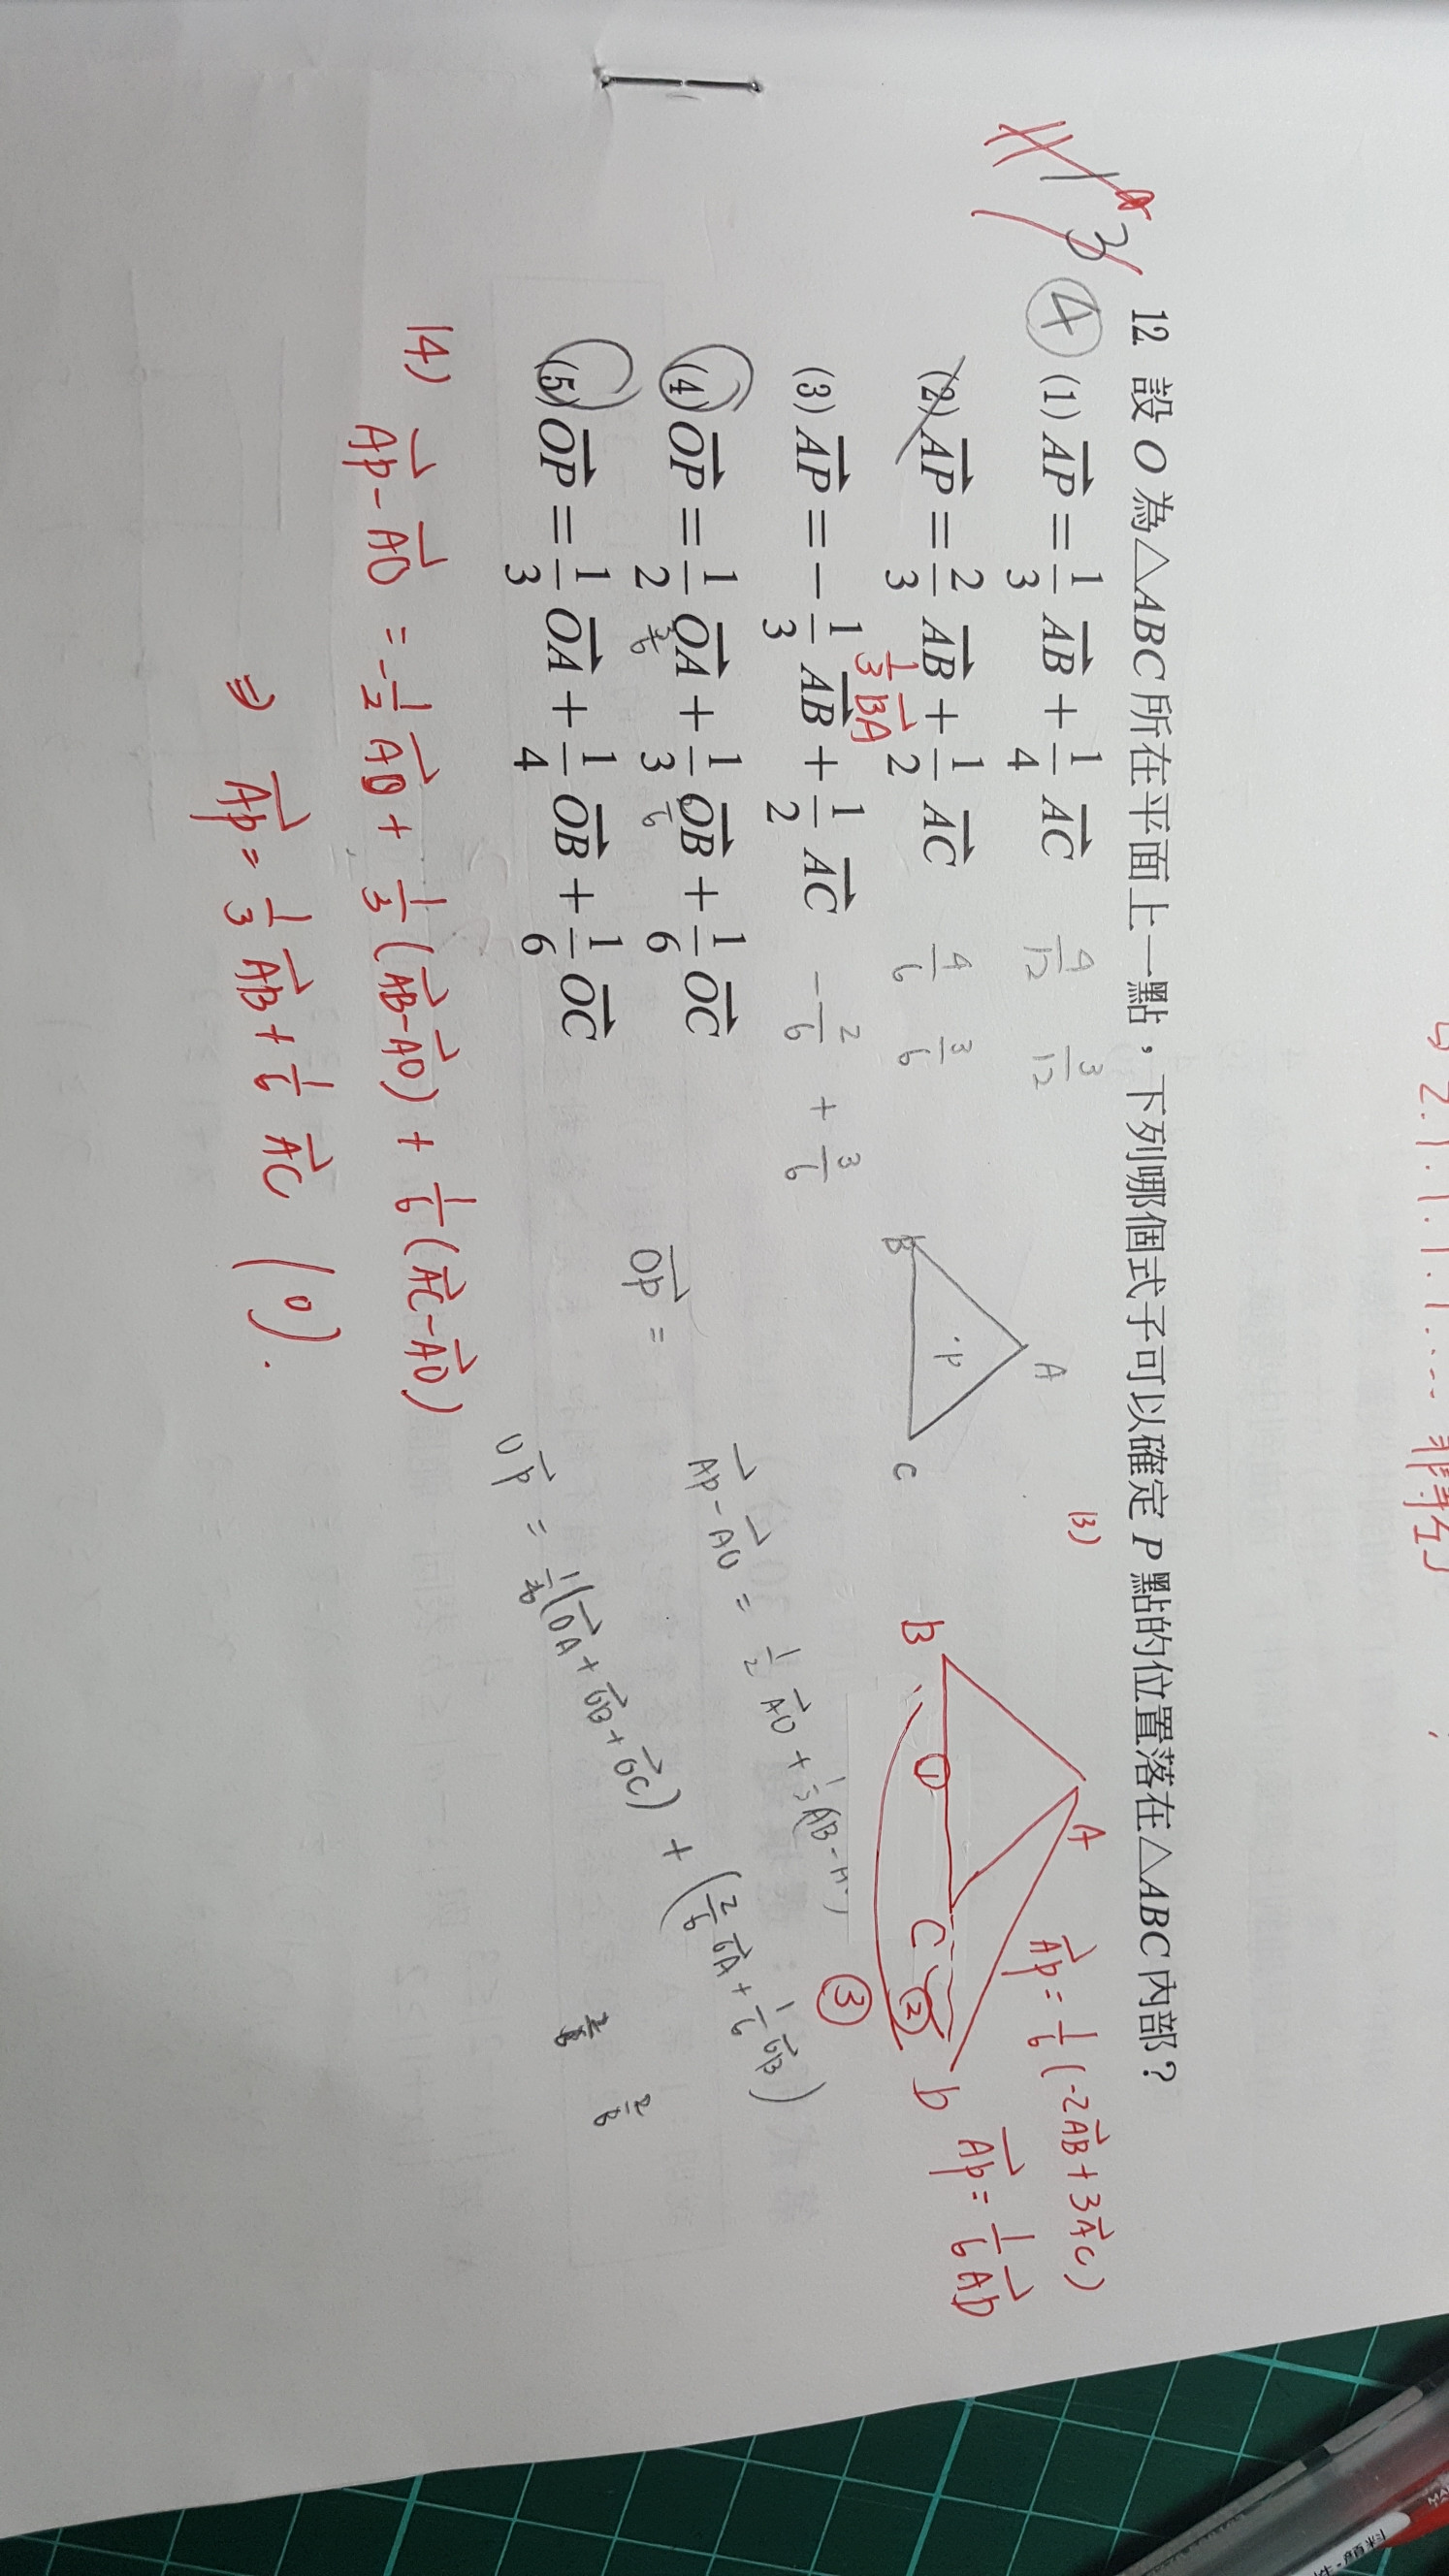 12. 設 O 為△ABC 所在平面上一點，下列哪個式子可以確定 P 點的位置落在△ABC 內部？
1 3 ④
(1) AP = 1/3 AB + 1/4 AC 4/12 3/12
(2) AP = 2/3 AB + 1/2 AC 4/6 3/6
1/3 BA
(3) AP = −1/3 AB + 1/2 AC −2/6 + 3/6
(4) OP = 1/2 OA + 1/3 OB + 1/6 OC
3/6 2/6
(5) OP = 1/3 OA + 1/4 OB + 1/6 OC
A
B
C
P
(3)
A
B
C
D
① ② ③
AP = 1/6 (-2AB + 3AC)
AP = 1/6 AD
OP =
AP - AO = 1/2 AO + 1/3 (AB -
OP = 1/6 (OA + OB + OC) + (2/6 OA + 1/6 OB)
(4) AP - AO = -1/2 AO + 1/3 (AB - AO) + 1/6 (AC - AO)
⇒ AP = 1/3 AB + 1/6 AC (0).